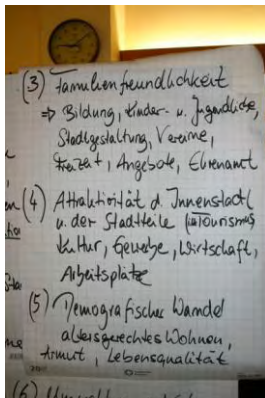 (3) Familienfreundlichkeit
⇒ Bildung, Kinder- u. Jugendliche,
Stadtgestaltung, Vereine,
Freizeit, Angebote, Ehrenamt
(4) Attraktivität d. Innenstadt
u. der Stadtteile (Tourismus
Kultur, Gewerbe, Wirtschaft,
Arbeitsplätze
(5) Demografischer Wandel
altersgerechtes Wohnen,
Armut, Lebensqualität
(6)